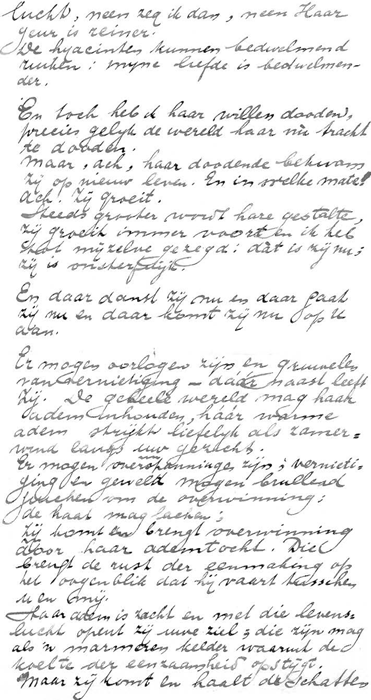 lucht, neen zeg ik dan, neen Haar
geur is reiner.
De hyacinten kunnen bedwelmend
ruiken: myne liefde is bedwelmen-
der.
En toch heb ik haar willen dooden,
precies gelyk de wereld haar nu tracht
te dooden.
Maar, ach, haar doodende bekwam
zij op nieuw leven. En in welke mate!
Ach! zij groeit.
Steeds grooter wordt hare gestalte,
zij groeit immer voort en ik heb
tot mijzelve gezegd: dat is zij nu;
zij is onsterfelijk.
En daar danst zij nu en daar gaat
zij nu en daar komt zij nu op u
aan.
Er mogen oorlogen zijn en gruwelen
van vernietiging — daar naast leeft
zij. De geheele wereld mag haar
adem inhouden, háár warme
adem strijkt liefelyk als zomer-
wind langs uw gezicht.
Er mogen overspanningen zijn; vernieti-
ging en geweld mogen brullend
juichen om de overwinning;
de haat mag lachen;
zij komt en brengt overwinning
door haar ademtocht. Die
brengt de rust der eenmaking op
het oogenblik dat hij vaart tusschen
u en mij.
Haar adem is zacht en met die levens-
lucht opent zij uwe ziel; die zijn mag
als 'n marmeren kelder waaruit de
koelte der eenzaamheid opstijgt.
Maar zij komt en haalt de schatten